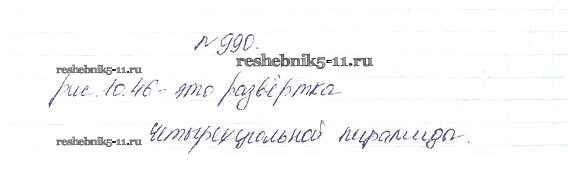 №990.
reshebnik5-11.ru
reshebnik5-11.ru
рис. 10.46 - это развёртка
четырехугольной пирамиды.
reshebnik5-11.ru